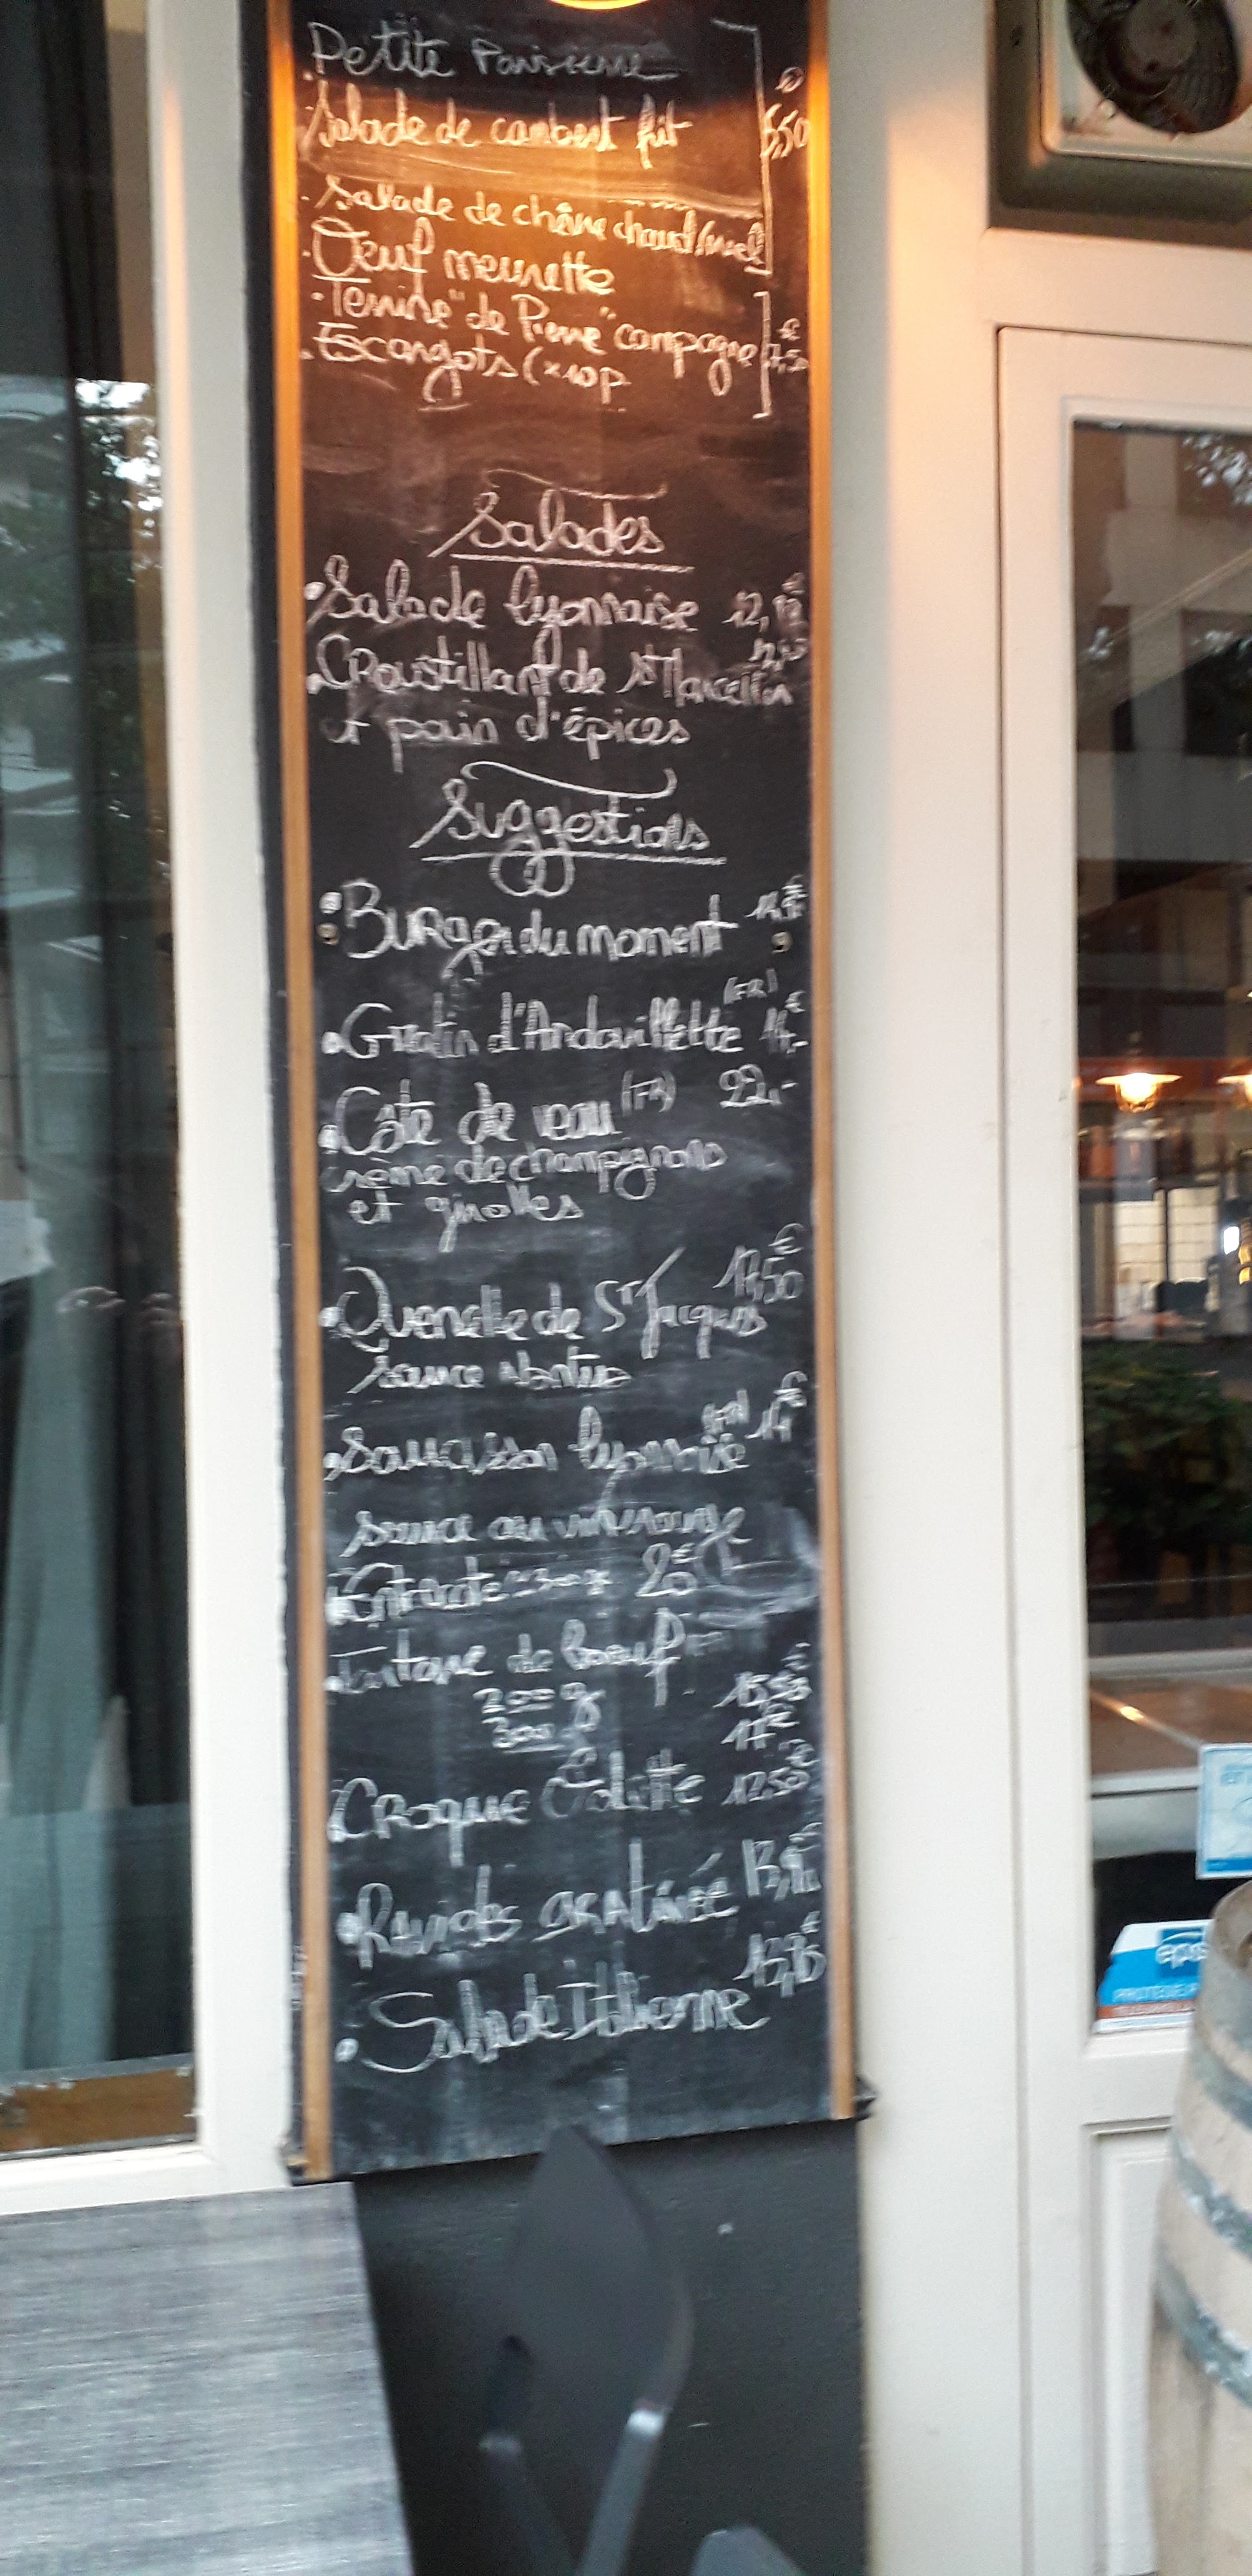 Petite Parisienne
€
Salade de cambert frit 6,50
. Salade de chèvre chaud/miel
. Oeuf meurette
. Terrine "de Pierre" campagne €
. Escargots (x10p 7,50
Salades
€
. Salade lyonnaise 12,
. Croustillant de St Marcellin
et pain d'épices
Suggestions
. Burger du moment
(FR) €
. Gratin d'Andouillette
. Côte de veau (FR) 22,-
crème de champignons
et girolles
€
17,50
. Quenelle de St Jacques
sauce Nantua
€
. Saucisson lyonnaise
sauce au vin rouge
. Entrecôte 300g 20€
. Tartare de boeuf
200 g
300 g 17€
Croque Colette 12,50
. Ravioles gratinée
. Salade Italienne
eps